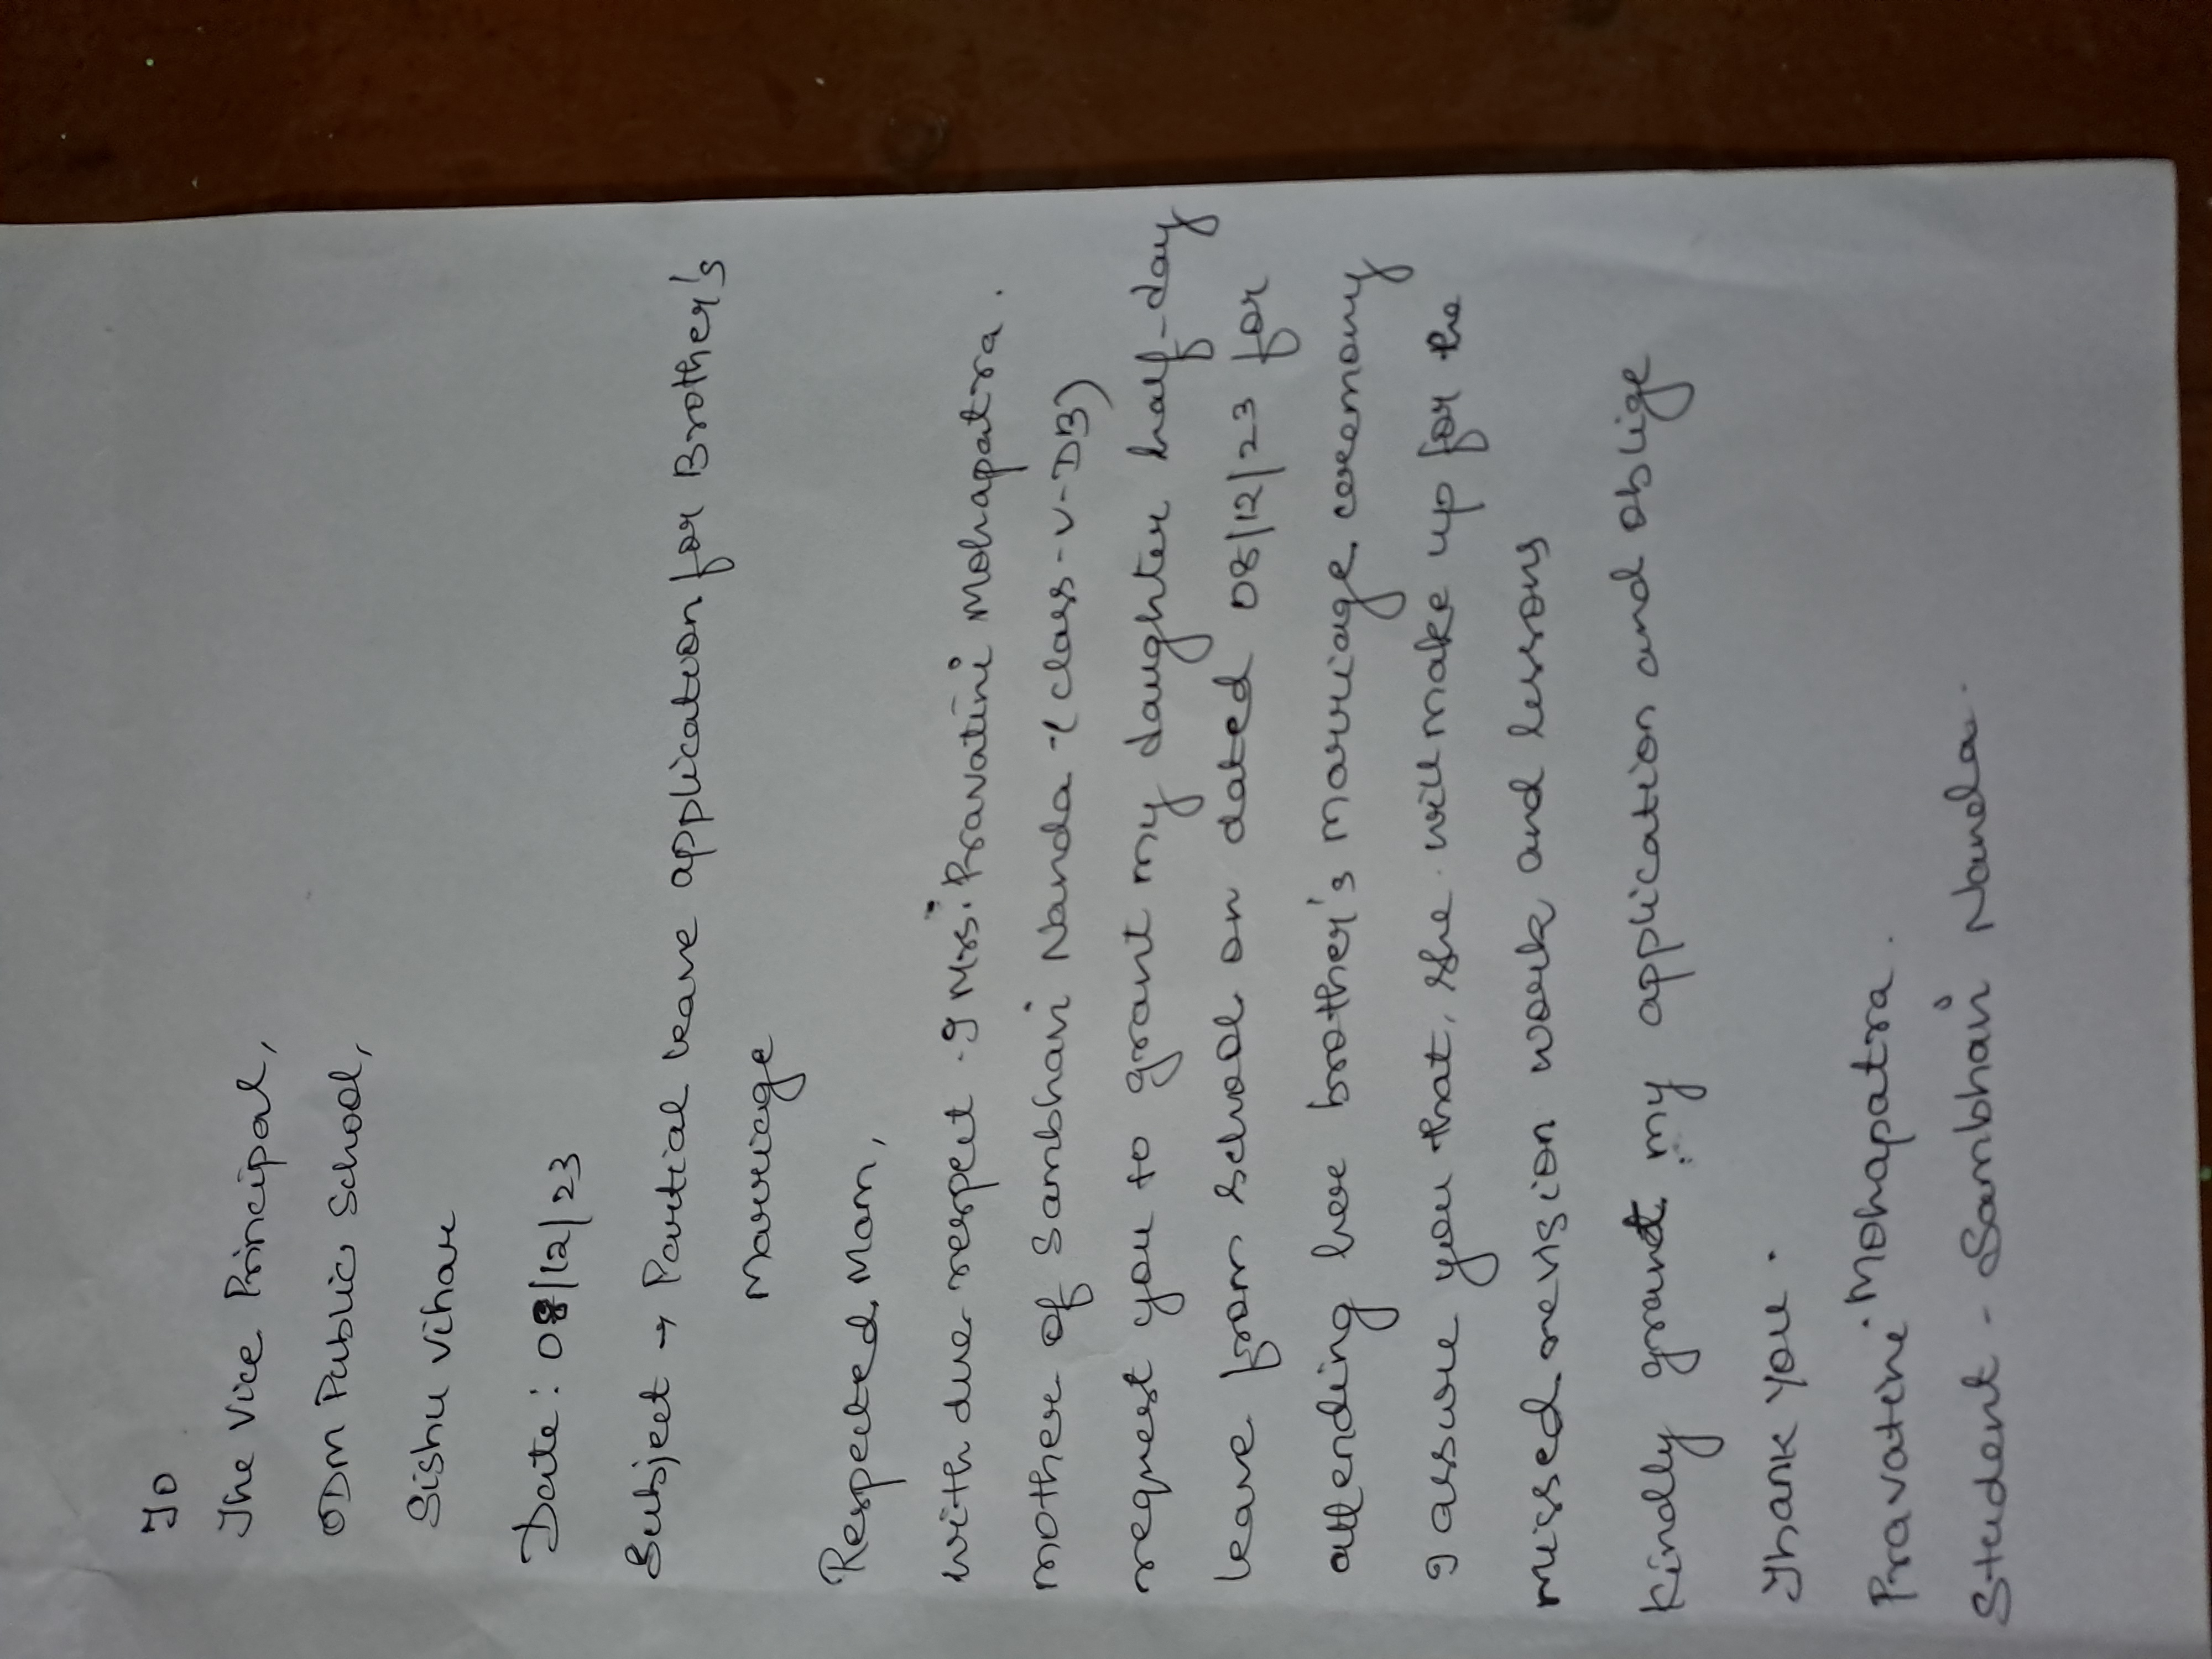 To
The Vice Principal,
ODM Public School,
Sishu Vihar
Date : 08/12/23
Subject → Partial leave application for Brother's
Marriage
Respected Mam,
With due respect. I Mrs. Pravatini Mohapatra.
mother of Sambhavi Nanda - (class - V - DB)
request you to grant my daughter half-day
leave from school on dated 08/12/23 for
attending her brother's marriage ceremony
I assure you that, she will make up for the
missed revision work and lessons
Kindly grant my application and oblige
Thank you.
Pravatini Mohapatra.
Student - Sambhavi Nanda.